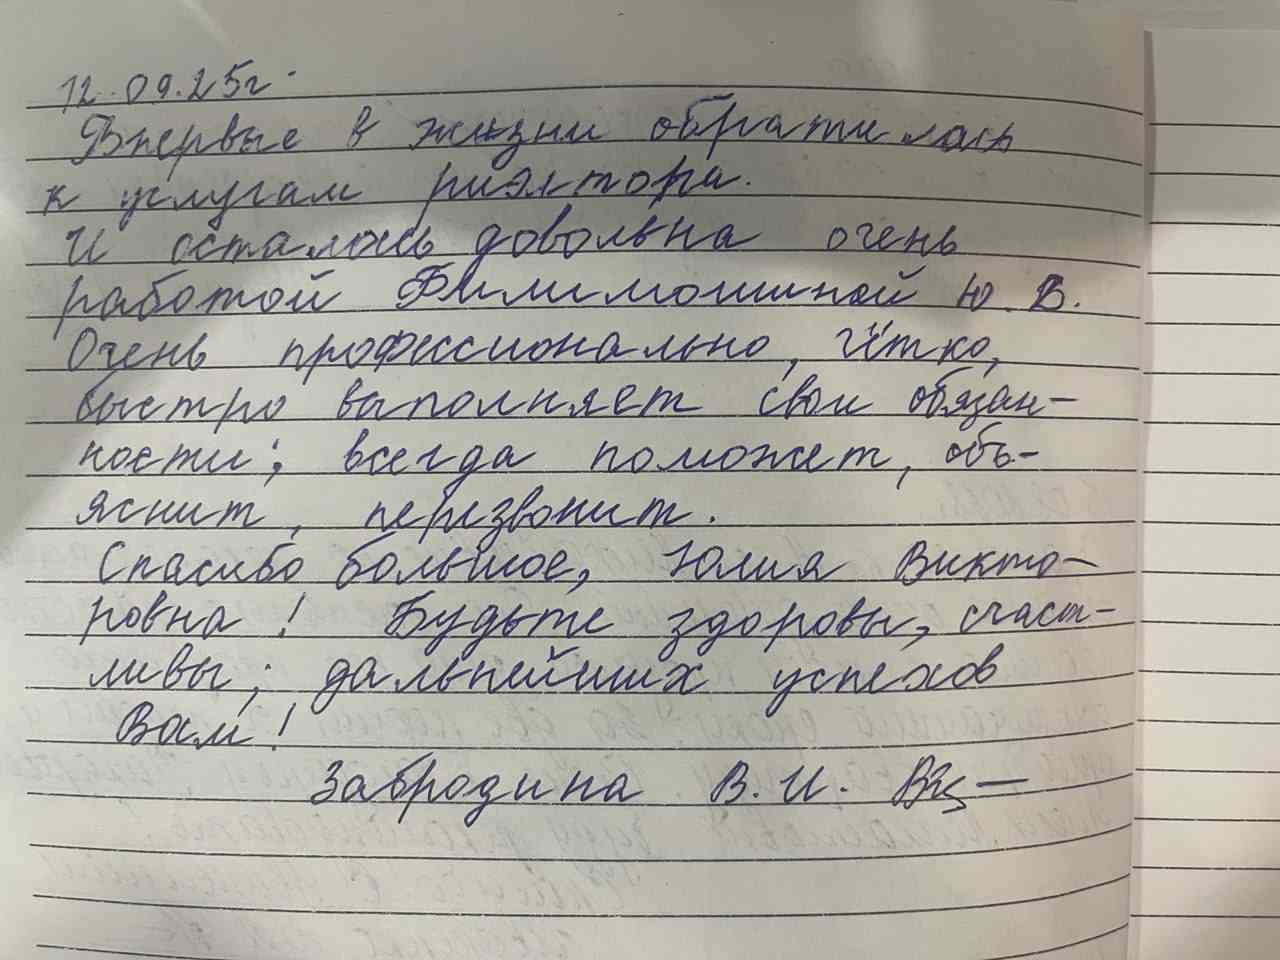 12.09.25г.
Впервые в жизни обратилась
к услугам риэлтора.
И осталась довольна очень
работой Филимошиной Ю.В.
Очень профессионально, чётко,
быстро выполняет свои обязан-
ности; всегда поможет, объ-
яснит, перезвонит.
Спасибо большое, Юлия Викто-
ровна! Будьте здоровы, счаст-
ливы; дальнейших успехов
Вам!
Забродина В.И.